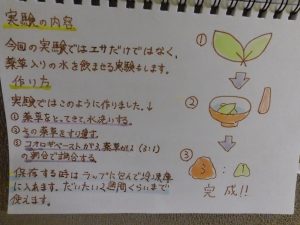 実験の内容
今回の実験ではエサだけではなく、
薬草入りの水を飲ませる実験もします。
作り方
実験ではこのように作りました。↓
① 薬草をとってきて、水洗いする。
② その薬草をすり潰す。
③ コオロギペースト 薬草が (3:1)
の割合で調合する。
保存する時はラップに包んで冷凍庫
に入れます。だいたい2週間くらいまで
使えます。
①
②
③
:
完成!!